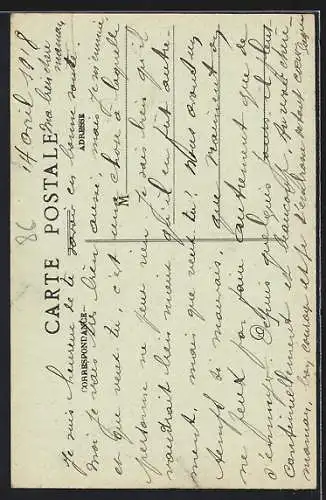 14 avril 1918
86
Ma bien chère
maman,
CARTE POSTALE
CORRESPONDANCE
ADRESSE
M
Je suis heureux de te savoir en bonne santé.
Moi je vais très bien aussi, mais je m'ennuie
et que veux tu, c'est une chose à laquelle
personne ne peut rien. Je sais bien qu'il
vaudrait bien mieux qu'il en fut autre
ment, mais que veux tu? Nous avons un
temps si mauvais, vraiment qu'on
ne peut pas faire autrement que de
s'ennuyer. Depuis quelques jours il pleut
continuellement et beaucoup. Au revoir chère
maman, bon courage et je t'embrasse de tout cœur